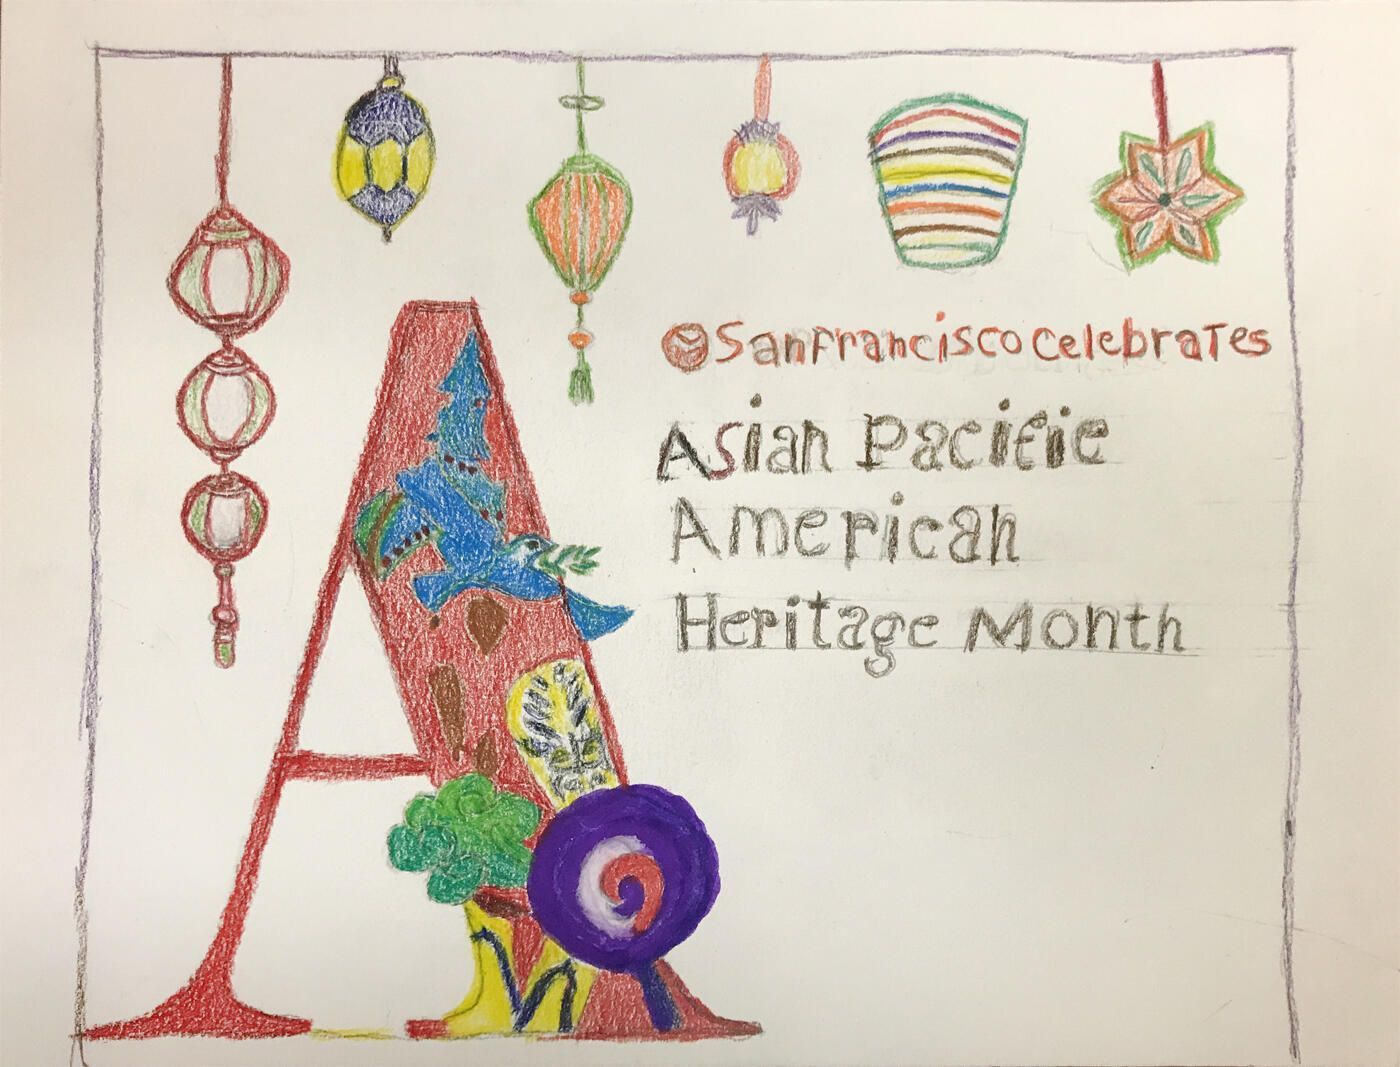 San Francisco Celebrates
Asian Pacific
American
Heritage Month